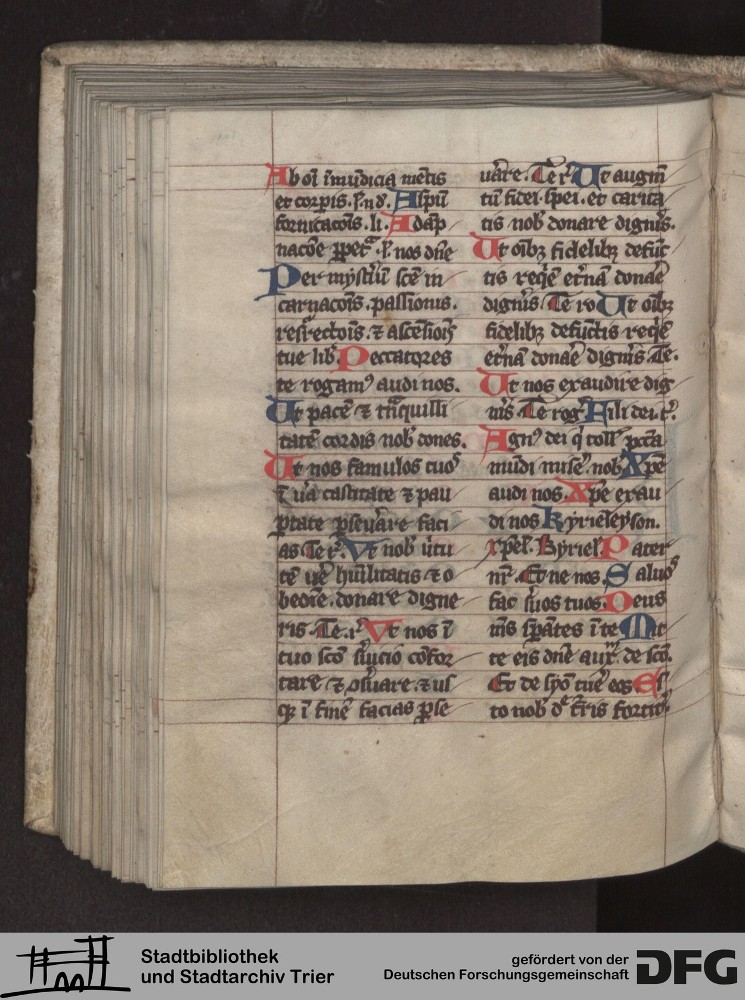 Ab oi īmūdicia mētis
et corpis. l. n. d. A spū
fornicacōis. li. A dāp
nacōe ppet. l. nos dn̄e
Per mystīu scē in
carnacōis. passionis.
resrectōis. ⁊ ascēsiōis
tue lib. Peccatores
te rogam⁹ audi nos.
Ut pacē ⁊ trāquilli
tatē cordis nob dones.
Ut nos famulos tuos
ī ūa castitate ⁊ pau
ptate pseūare faci
as Te r. Ut nob
hūilitatis ⁊ o
bediē. donare digne
ris. Te. r. Ut nos ī
tuo scō sūicio cōfor
tare ⁊ ꝯsūare. ⁊ us
qꝫ ī finē facias pse
uāre. Te r. Ut augm̄
tū fidei. spei. et carita
tis nob donare digris.
Ut oībꝫ fidelibꝫ defūc
tis reqiē etnā donāe
digris Te ro Ut oībꝫ
fidelibꝫ defūctis reqiē
etnā donāe digris Te.
Ut nos exaudire dig
nis Te rog Fili dei. t.
Agn⁹ dei q toll pccā
mūdi mise. nob Xpe
audi nos. Xpe exau
di nos kyrieleyson.
xpel. Kyriel. Pater
nr. Et ne nos. Saluos
fac suos tuos. Deus
ms spātes ī te Mit
te eis dn̄e aux. de scō.
Et de syō tuē eos Es
to nob dn̄e t̄ris fortit.
Stadtbibliothek
und Stadtarchiv Trier
gefördert von der
Deutschen Forschungsgemeinschaft
DFG